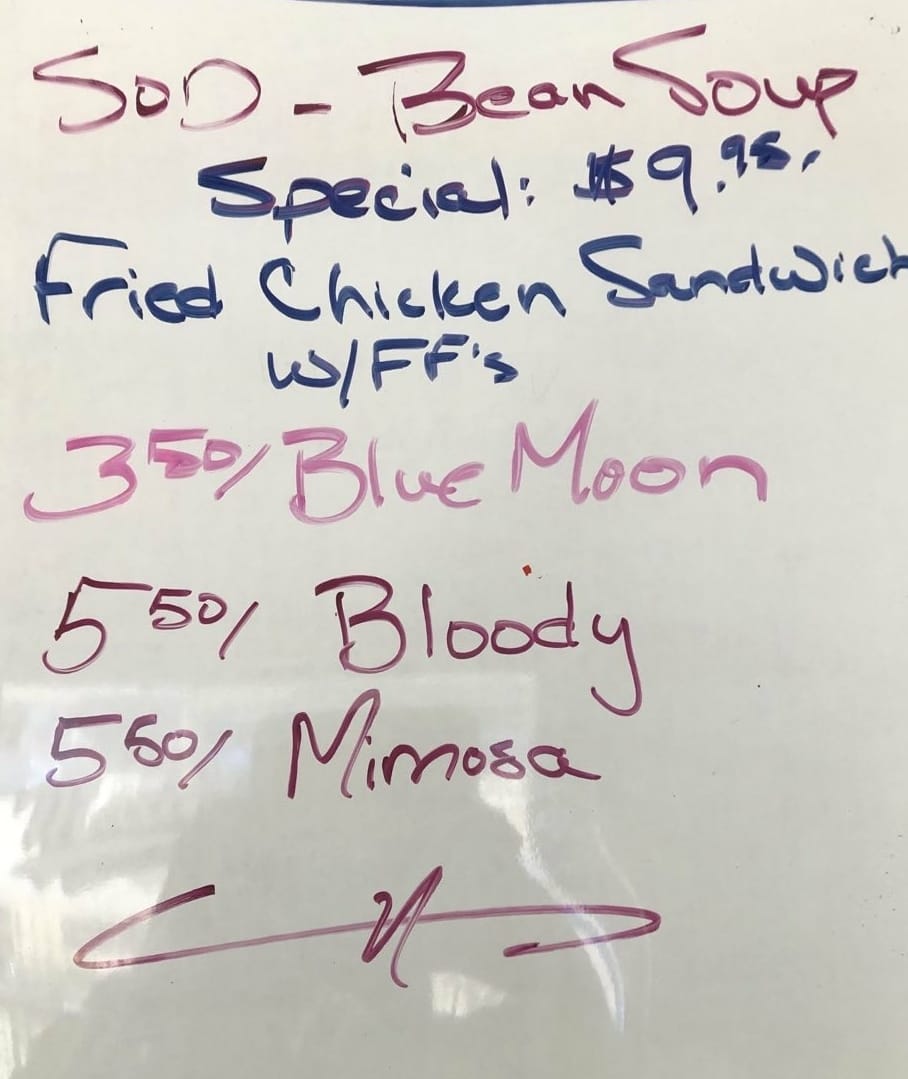 SoD - Bean Soup
Special: $9.95.
Fried Chicken Sandwich
w/FF's
3 50/ Blue Moon
5 50/ Bloody
5 50/ Mimosa